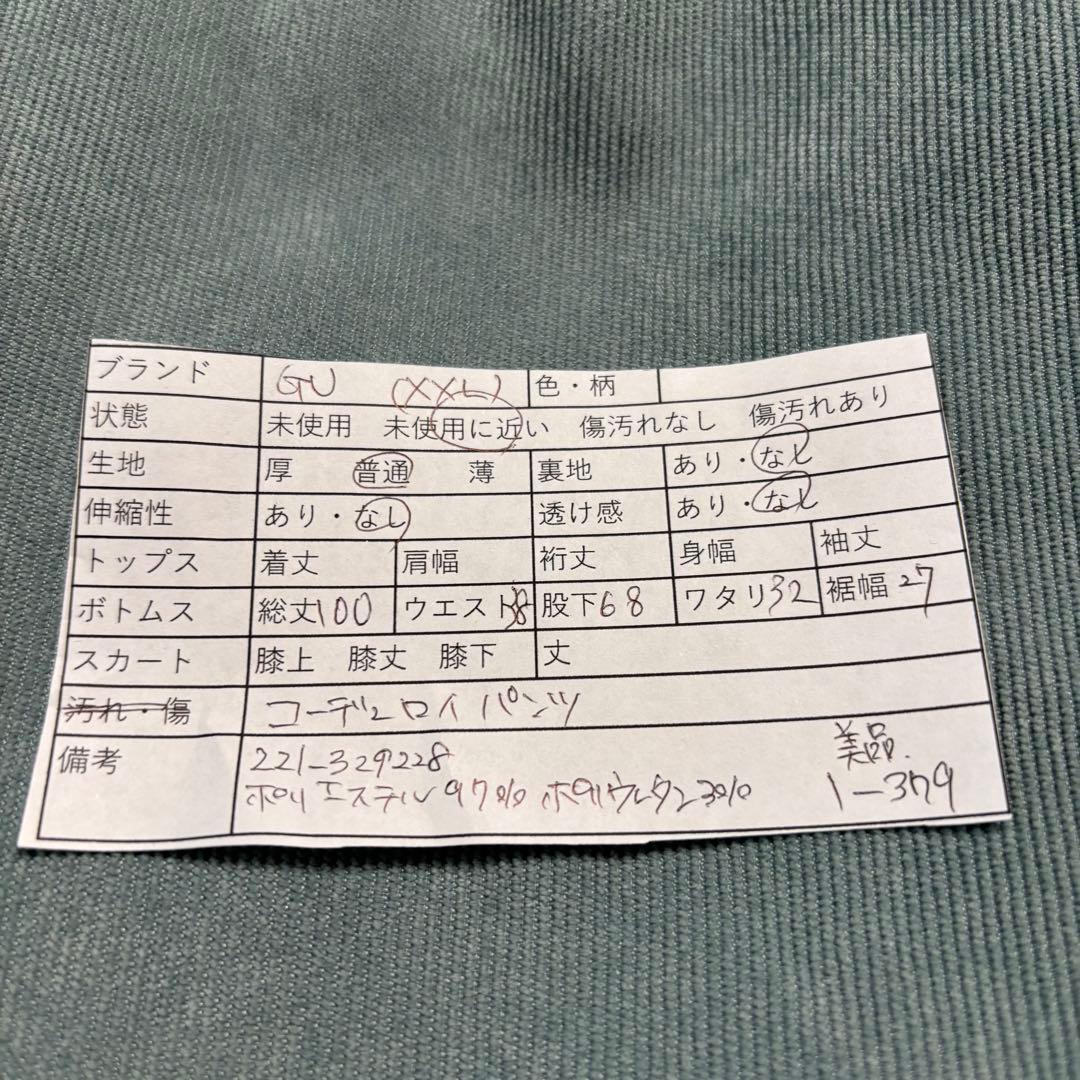 ブランド GU (XXL) 色・柄
状態 未使用 未使用に近い 傷汚れなし 傷汚れあり
生地 厚 普通 薄 裏地 あり・なし
伸縮性 あり・なし 透け感 あり・なし
トップス 着丈 肩幅 裄丈 身幅 袖丈
ボトムス 総丈100 ウエスト 股下68 ワタリ32 裾幅27
スカート 膝上 膝丈 膝下 丈
汚れ・傷 コーデュロイパンツ
備考 221-329228 美品.
ポリエステル97% ポリウレタン3% 1-379